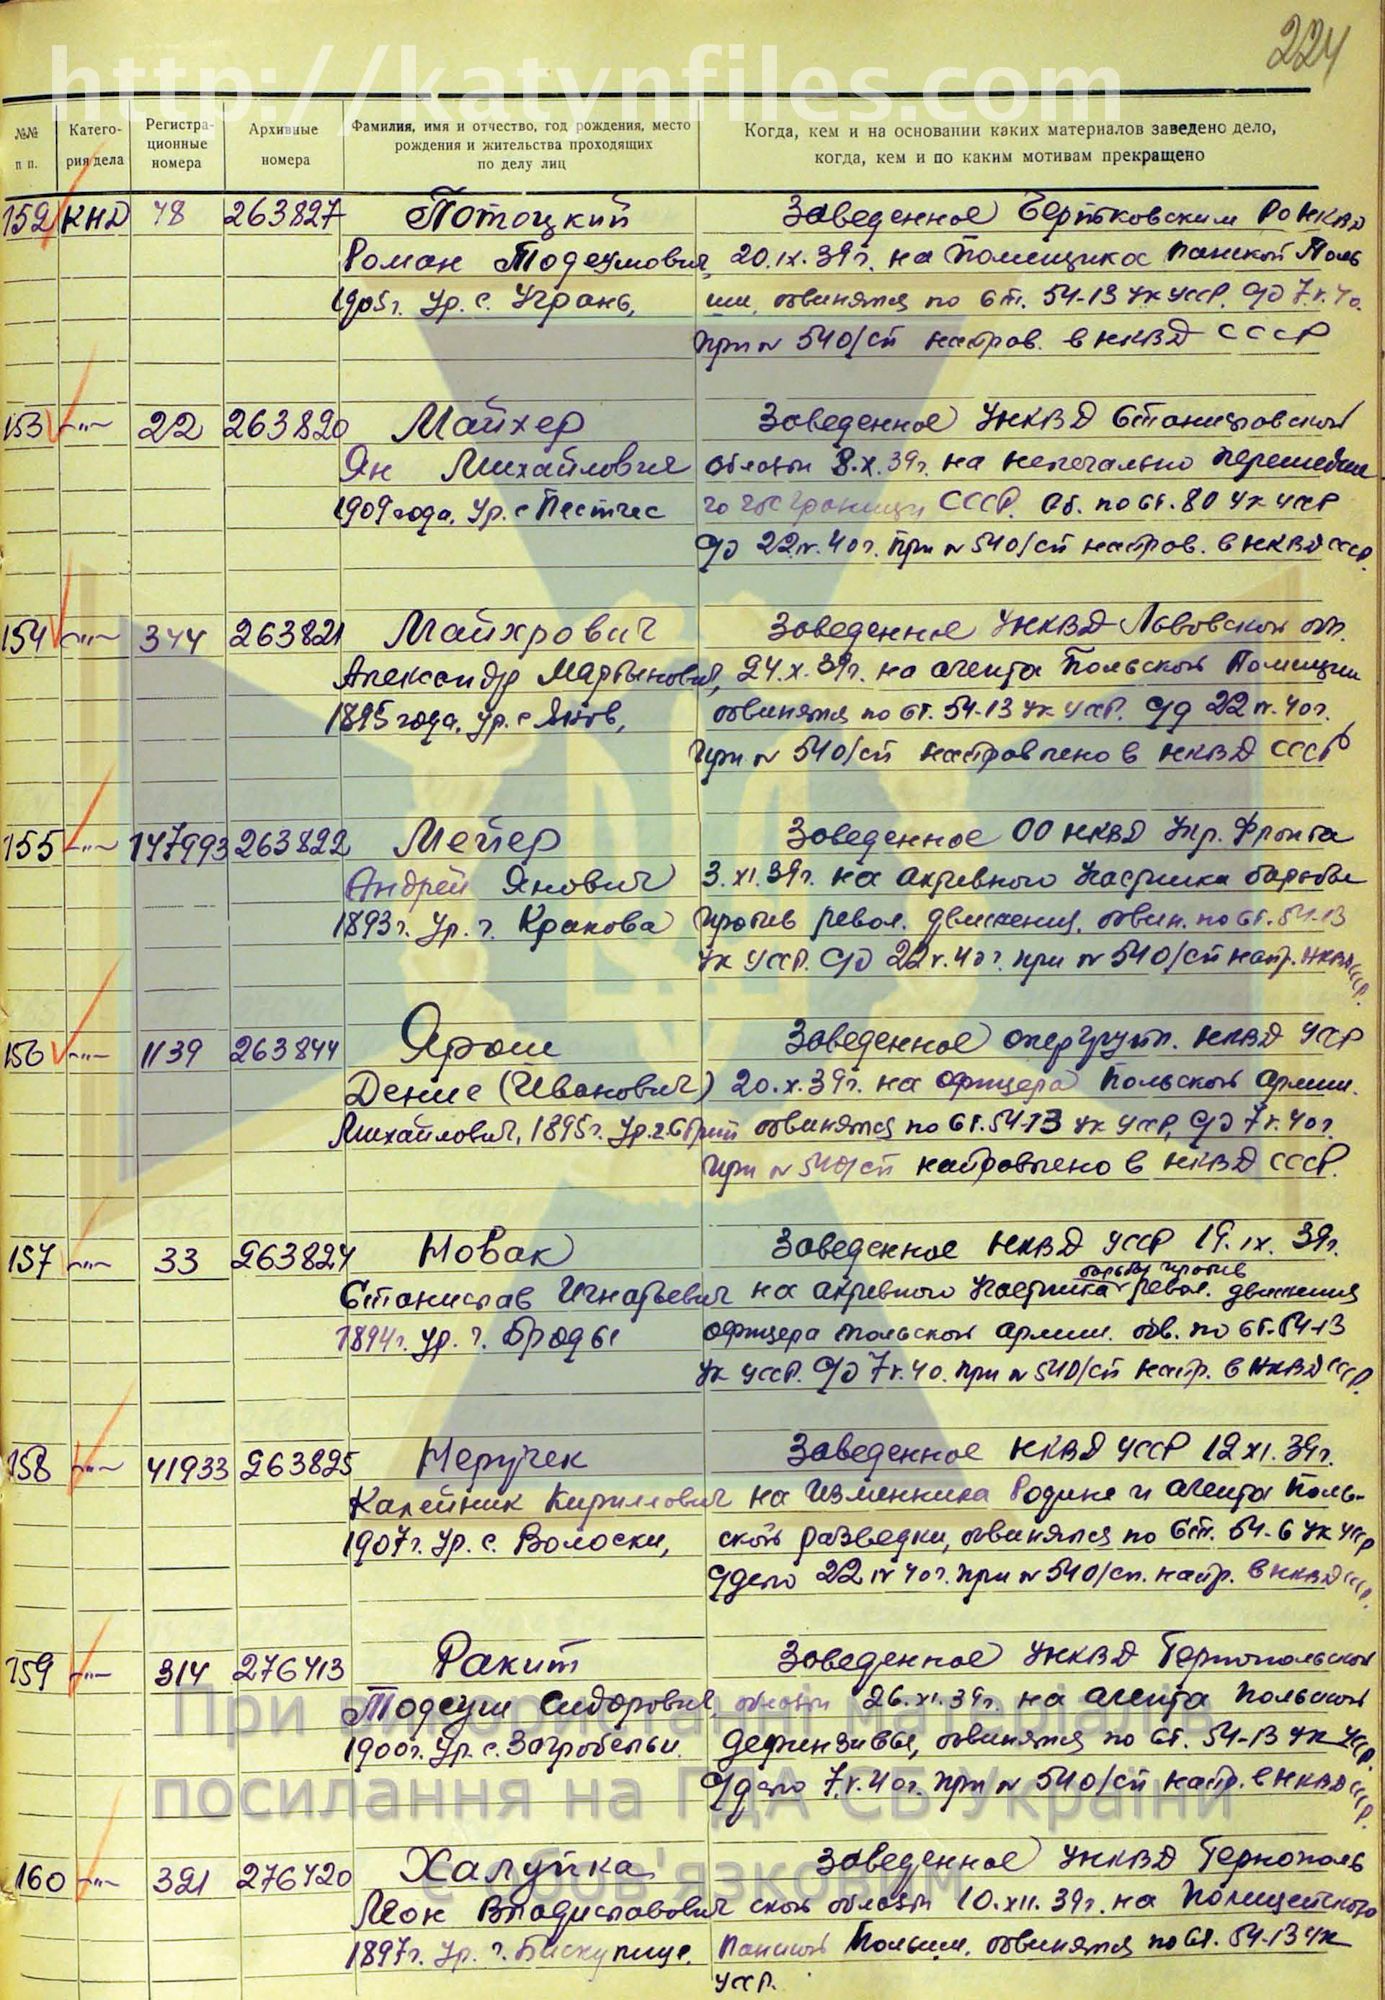 224
http://katynfiles.com
№№ п п.
Катего-
рия дела
Регистра-
ционные
номера
Архивные
номера
Фамилия, имя и отчество, год рождения, место
рождения и жительства проходящих
по делу лиц
Когда, кем и на основании каких материалов заведено дело,
когда, кем и по каким мотивам прекращено
152 КНД 78 263827 Потоцкий Заведенное РОНКВД
Роман Тодеумович, 20.IX.39г. на помещика панской Поль
1905г. Ур. с. Угрань, ши, обвинятся по ст. 54-13 УК УССР. 7.V.40.
при № 540/сп направ. в НКВД СССР
153 —"— 22 263820 Майхер Заведенное УНКВД Станиславской
Ян Михайлович области 8.X.39г. на нелегально перешедше
1909 года, Ур. с го гос границу СССР. Об. по ст. 80 УК УССР
22.V.40г. При № 540/сп направ. в НКВД СССР.
154 —"— 344 263821 Майхрович Заведенное УНКВД Львовской обл.
Александр Мартынович, 24.X.39г. на агента Польской
1895 года, Ур. с Янов, обвинятся по ст. 54-13 УК УССР. 22 40г.
При № 540/сп направлено в НКВД СССР
155 —"— 147993 263822 Мейер Заведенное ОО НКВД Укр. Фронта
Андрей Янович 3.XI.39г. на активного участника борьбы
1893г. Ур. г. Кракова против револ. движения, обвин. по ст. 54-13
УК УССР. 22.V.40г. при № 540/сп напр. НКВД СССР.
156 —"— 1139 263844 Ярош Заведенное опергрупп. НКВД УССР
Денис (Иванович) 20.X.39г. на офицера польской армии.
Михайлович, 1895г. Ур. г. Стрий обвинятся по ст. 54-13 УК УССР, 7.V.40г.
При № 540/сп направлено в НКВД СССР.
157 —"— 33 263824 Новак Заведенное НКВД УССР 19.IX.39г.
борьбы против
Станислав Игнатьевич на активного участника револ. движения
1894г. Ур. г. Броды офицера польской армии. обв. по ст. 54-13
УК УССР. 7.V.40. при № 540/сп напр. в НКВД СССР.
158 —"— 41933 263825 Неручек Заведенное НКВД УССР 12 XI.39г.
Калейник Кириллович на изменника Родине и агента Поль-
1907г. Ур. с. Волоски, ской разведки, обвинятся по ст. 54-6 УК УССР
дело 22 IV 40г. при № 540/сп. напр. в НКВД СССР.
159 —"— 314 276413 Ракит Заведенное УНКВД Тернопольской
Тодеуш Сидорович, области 26.XI.39г. на агента польской
1900г. Ур. с. Загробельи. дефинзивы, обвинятся по ст. 54-13 УК УССР.
дело 7.V.40г. при № 540/сп напр. в НКВД СССР.
160 —"— 321 276420 Халупка Заведенное УНКВД Тернополь
Леон Владиславович ской области 10.XII.39г. на полицейского
1897г. Ур. г. Бискупице. панской Польши. обвинятся по ст. 54-13 УК
УССР.
При використанні матеріалів
посилання на ГДА СБ України
є обов'язковим